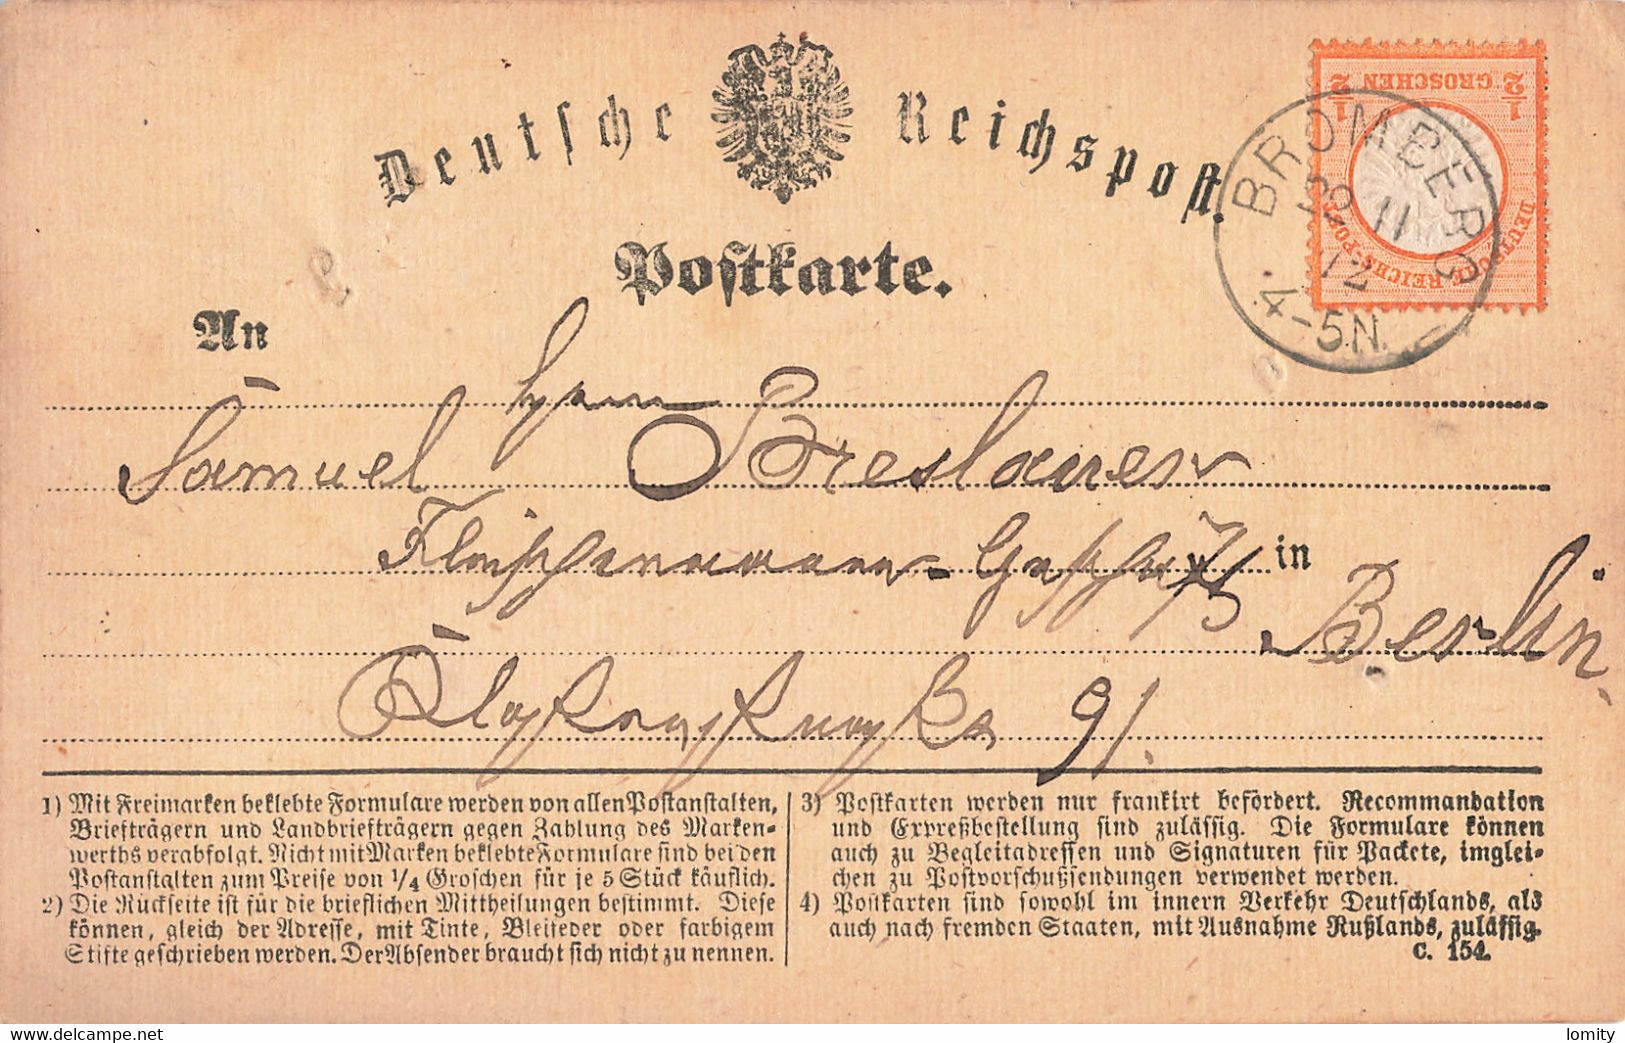 Deutsche Reichspost.
Postkarte.
½ GROSCHEN ½
DEUTSCHE REICHS-POST
BROMBERG
18 11
72
4-5N.
An
Herrn
Samuel Breslauer
in
Berlin
91.
1) Mit Freimarken beklebte Formulare werden von allen Postanstalten,
Briefträgern und Landbriefträgern gegen Zahlung des Marken-
werths verabfolgt. Nicht mit Marken beklebte Formulare sind bei den
Postanstalten zum Preise von 1/4 Groschen für je 5 Stück käuflich.
2) Die Rückseite ist für die brieflichen Mittheilungen bestimmt. Diese
können, gleich der Adresse, mit Tinte, Bleifeder oder farbigem
Stifte geschrieben werden. Der Absender braucht sich nicht zu nennen.
3) Postkarten werden nur frankirt befördert. Recommandation
und Expreßbestellung sind zulässig. Die Formulare können
auch zu Begleitadressen und Signaturen für Packete, imglei-
chen zu Postvorschußsendungen verwendet werden.
4) Postkarten sind sowohl im innern Verkehr Deutschlands, als
auch nach fremden Staaten, mit Ausnahme Rußlands, zulässig.
C. 154.
www.delcampe.net
lomity